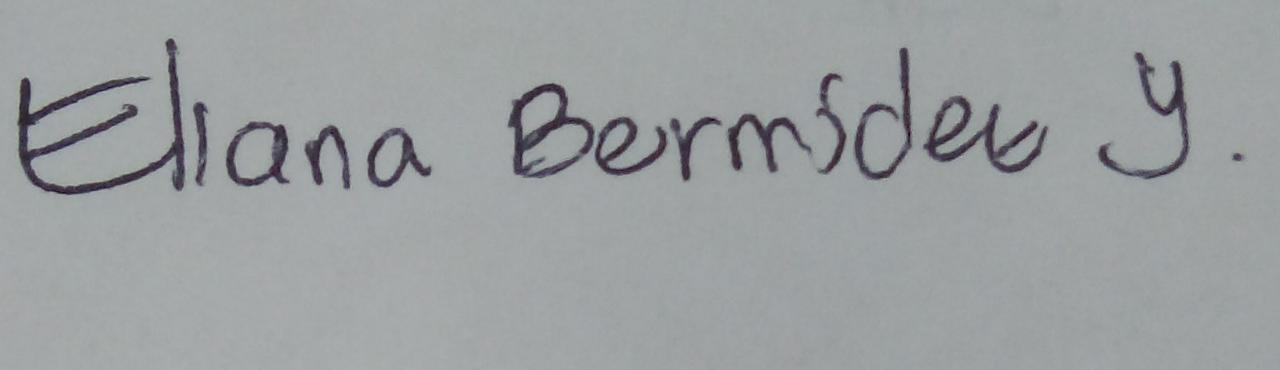 Eliana Bermúdez Y.